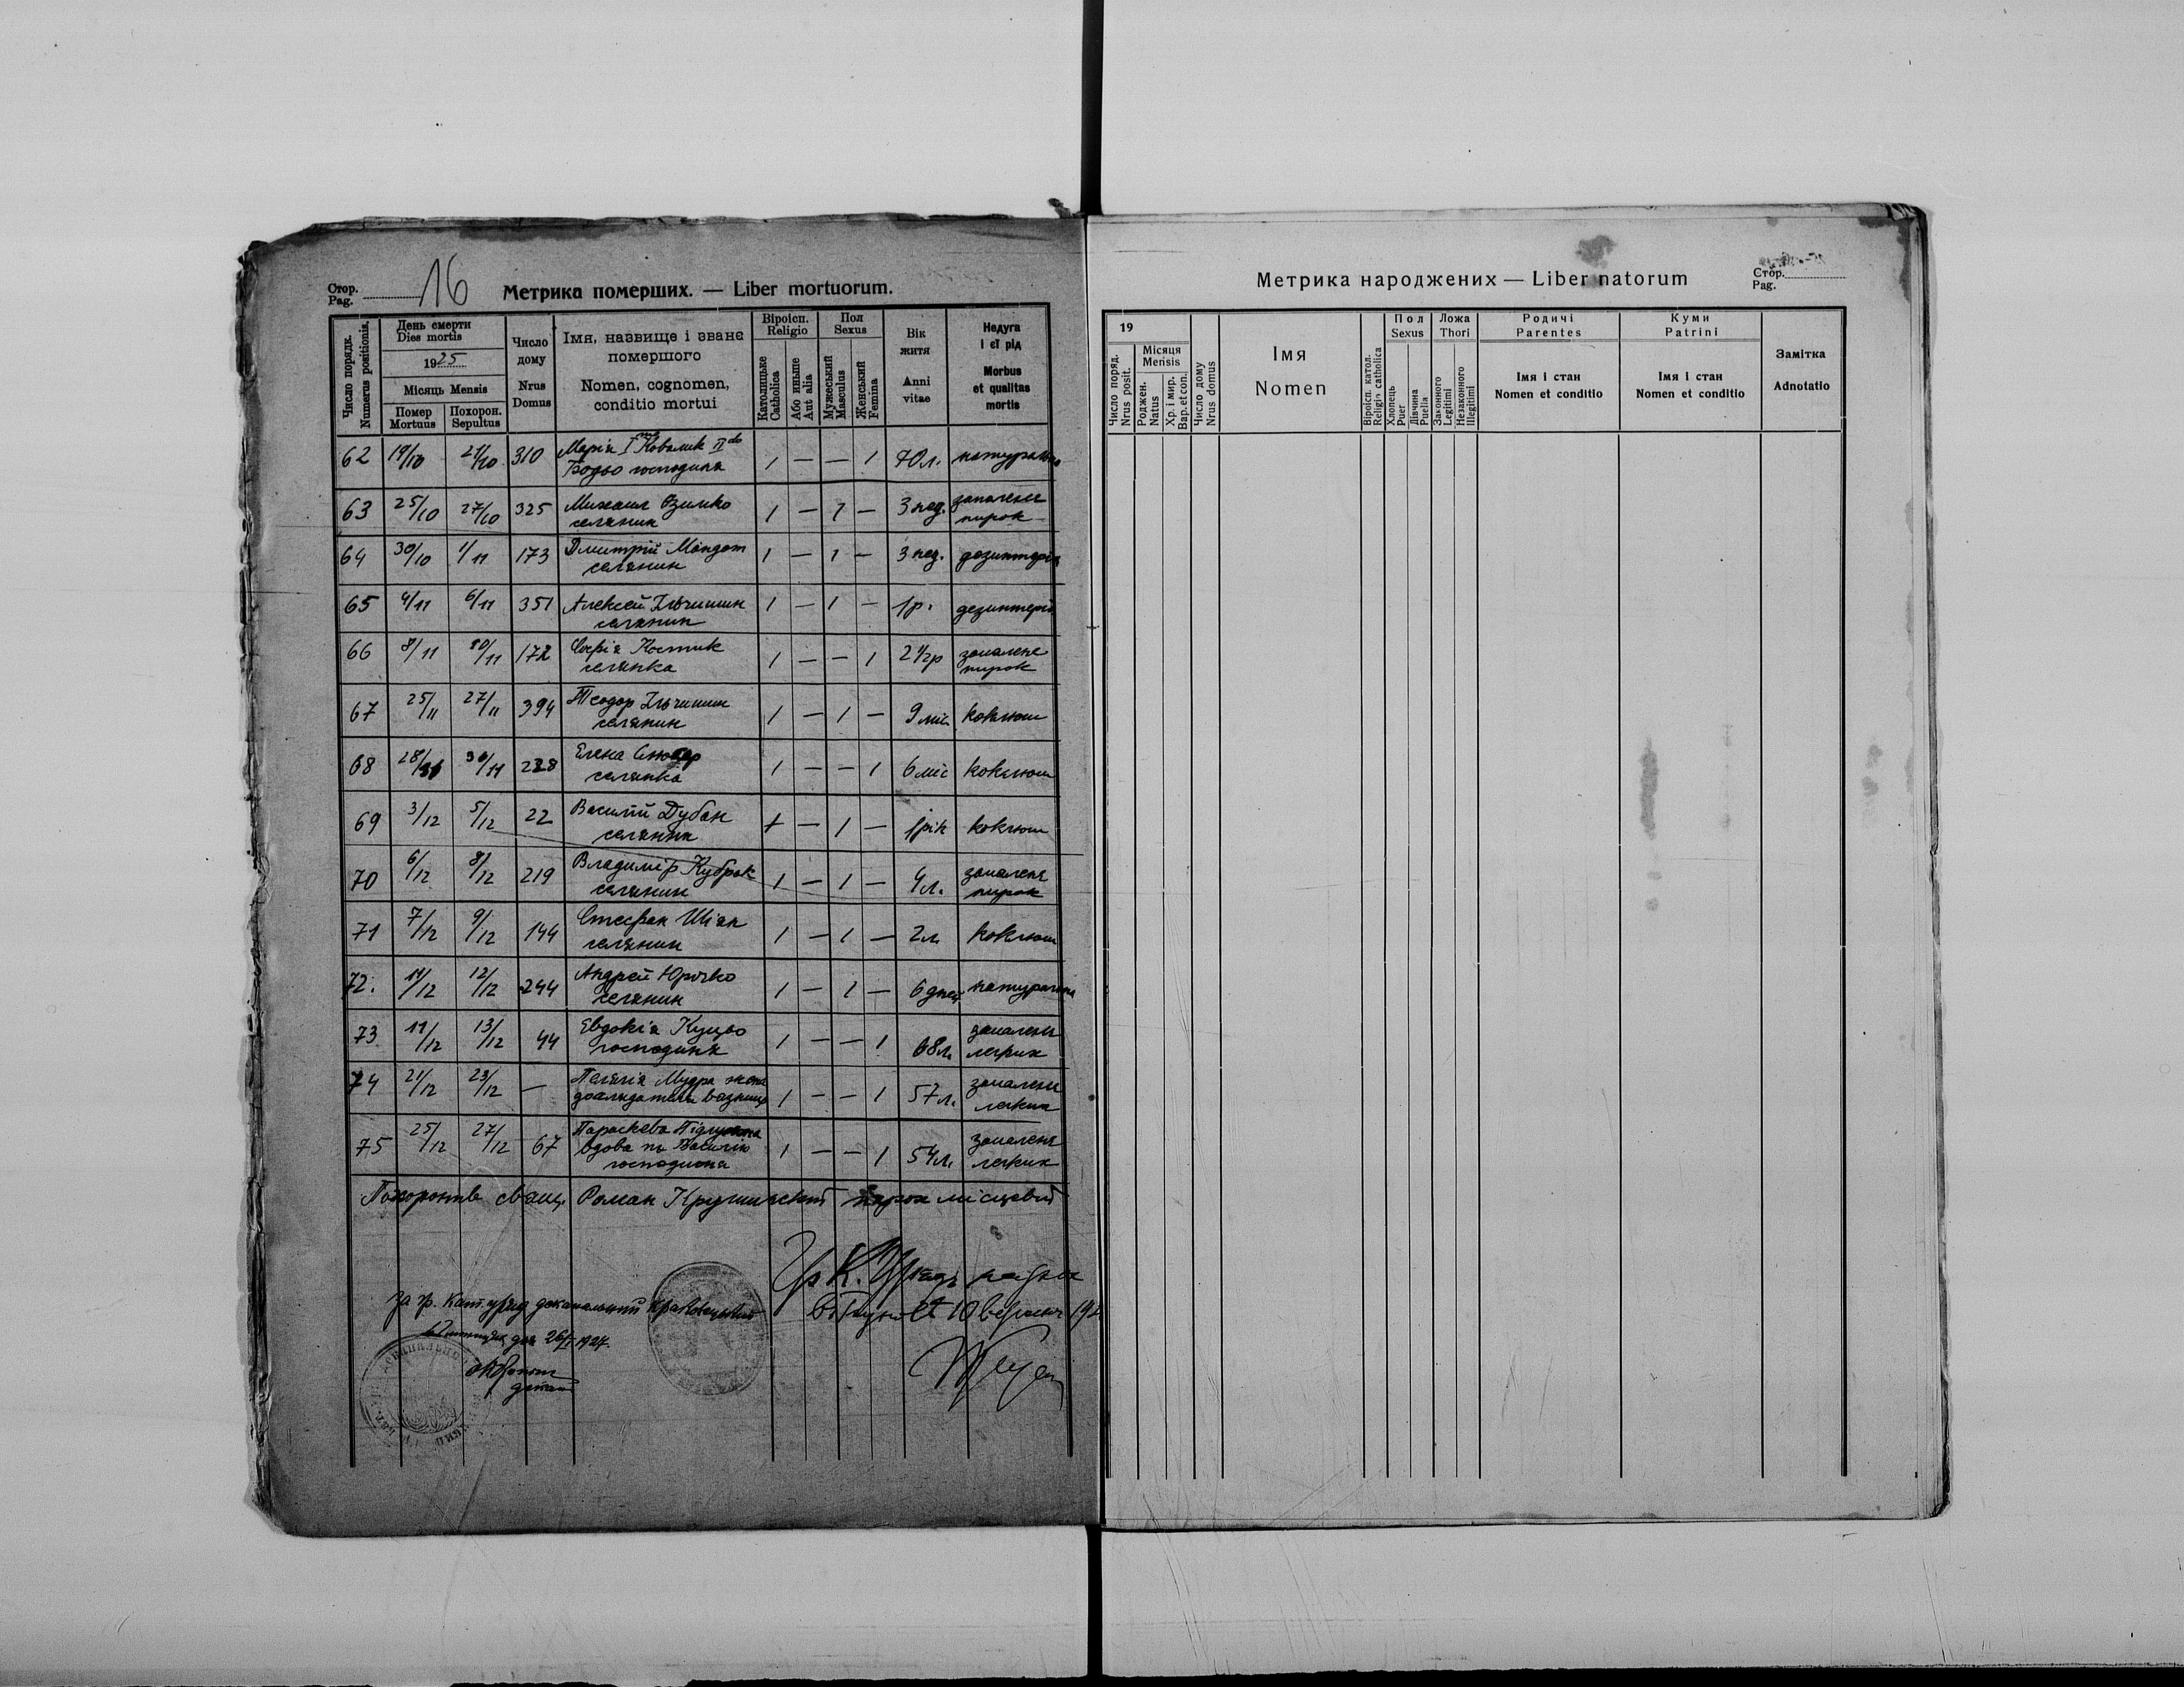 Стор.
Pag. 16
Метрика померших. — Liber mortuorum.
Число порядк.
Numerus positionis.
День смерти
Dies mortis
1925
Місяць Mensis
Помер
Mortuus
Похорон.
Sepultus
Число
дому
Nrus
Domus
Імя, назвище і званє
помершого
Nomen, cognomen,
conditio mortui
Віроісп.
Religio
Католицьке
Catholica
Або иньше
Aut alia
Пол
Sexus
Мужеський
Masculus
Женський
Femina
Вік
житя
Anni
vitae
Недуга
і єї рід
Morbus
et qualitas
mortis
62 19/10 21/10 310 Марія I Ковалик II do 1 — — 1 70 л. натуральна
господиня
63 25/10 27/10 325 Михаил 1 — 1 — 3 нед. запаленє
селянин нирок
64 30/10 1/11 173 Дмитрій 1 — 1 — 3 нед. дезинтерія
селянин
65 4/11 6/11 351 Алексей Ільчишин 1 — 1 — 1 р. дезинтерія
селянин
66 8/11 10/11 172 Софія Костик 1 — — 1 2 1/2 р запаленє
селянка нирок
67 25/11 27/11 394 Теодор Ільчишин 1 — 1 — 9 міс. коклюш
селянин
68 28/11 30/11 228 Елена 1 — — 1 6 міс коклюш
селянка
69 3/12 5/12 22 Василий Дубан 1 — 1 — 1 рік коклюш
селянин
70 6/12 8/12 219 Владимір Кубрак 1 — 1 — 4 л. запаленя
селянин нирок
71 7/12 9/12 144 Стефан Шіян 1 — 1 — 2 л. коклюш
селянин
72. 11/12 12/12 244 Андрей Юрочко 1 — 1 — 6 дней натуральна
селянин
73 11/12 13/12 44 Евдокія Куцьо 1 — — 1 68 л. запаленє
господиня легких
74 21/12 23/12 — Пелягія Мудра жена 1 — — 1 57 л. запаленє
доглядателя вязниці легких
75 25/12 27/12 67 Параскева 1 — — 1 54 л. запаленя
вдова по Василію легких
господиня
Похоронив свящ. Роман Кручинський парох місцевий
Гр. К. Уряд
10 вересня
За гр. кат. уряд деканальний
дня 26/
декан
Метрика народжених — Liber natorum
Стор.
Pag.
19
Число поряд.
Nrus posit.
Місяця
Mensis
Роджен.
Natus
Хр. і мир.
Bap. et con.
Число дому
Nrus domus
Імя
Nomen
Віроісп. катол.
Religio catholica
Пол
Sexus
Хлопець
Puer
Дівчина
Puella
Ложа
Thori
Законного
Legitimi
Незаконного
Illegitimi
Родичі
Parentes
Імя і стан
Nomen et conditio
Куми
Patrini
Імя і стан
Nomen et conditio
Замітка
Adnotatio